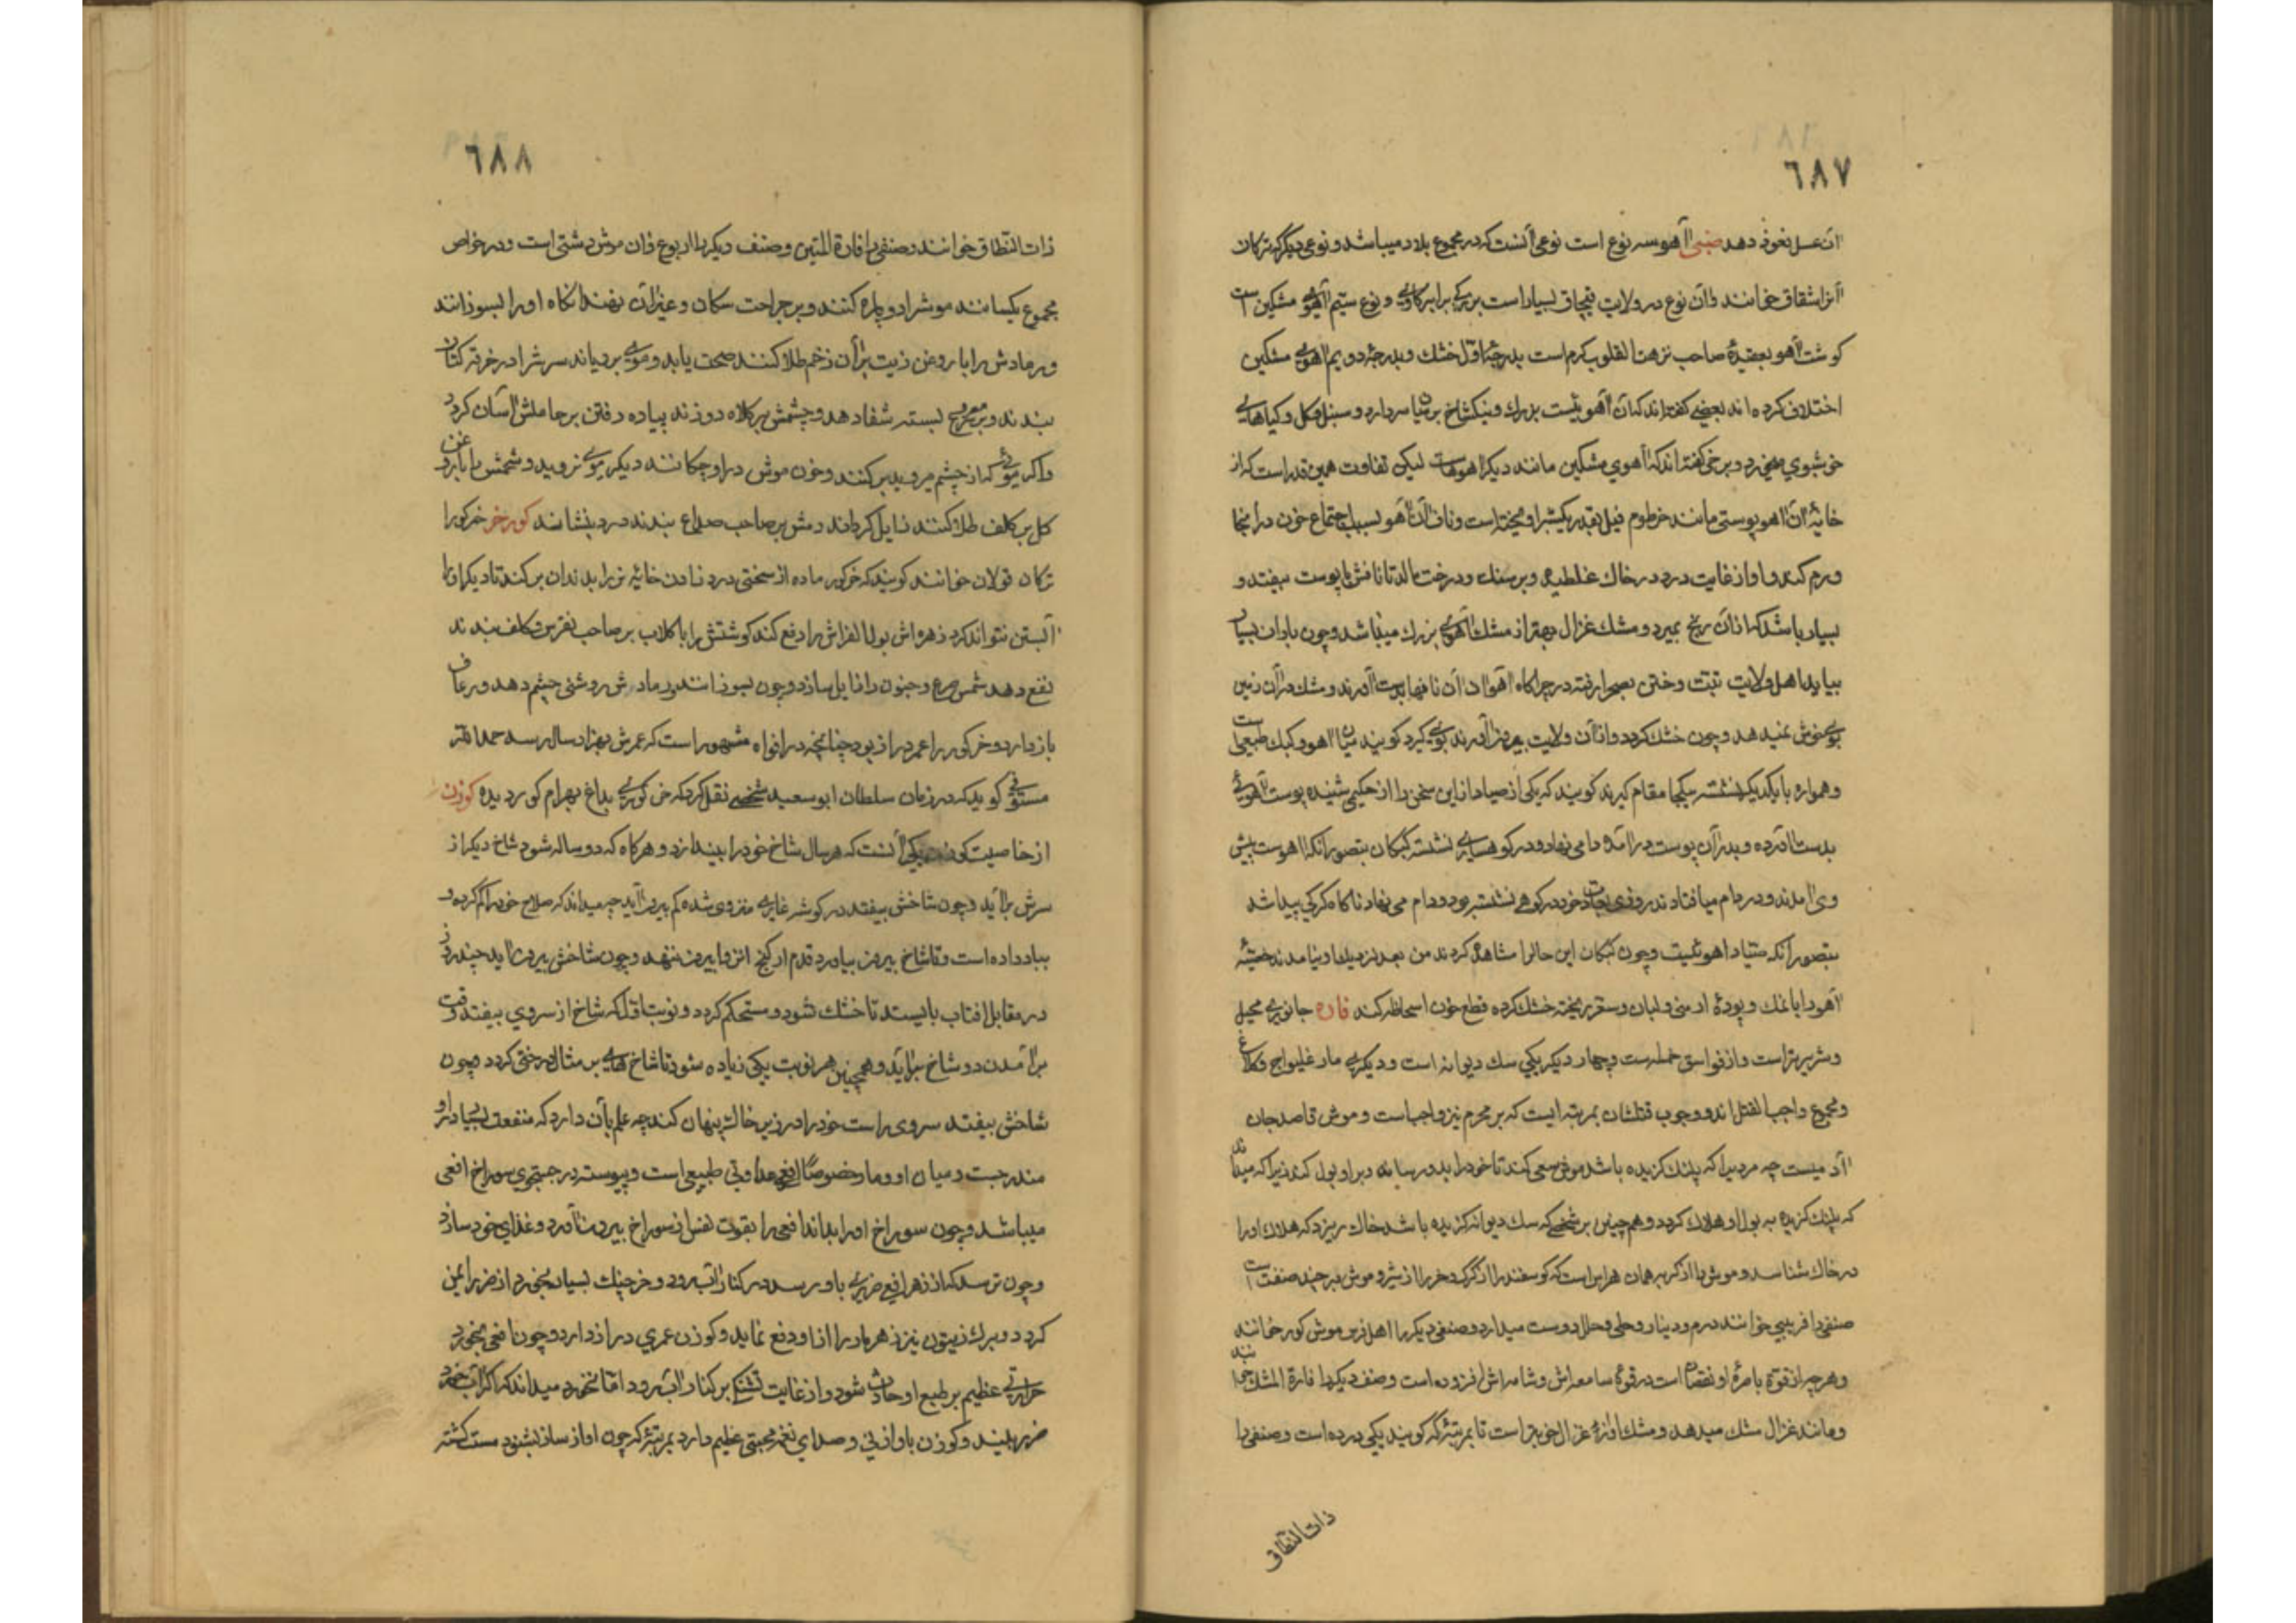 ٦٨٧
ان عسل نعوذ دهد ضبی آهو سه نوع است نوعی آنست که در مجموع بلاد میباشد و نوعی دیگر که ترکان
آنرا شقاق خوانند و آن نوع در ولایت قبچاق بسیار است بزرکی برابر کاوی و نوع سیم آهوی مشکین است
کوشت آهو بعقیدهٔ صاحب نزهت القلوب کرم است بدرجهٔ اوّل خشك و بدرجهٔ دویم آهوی مشکین
اختلاف کرده اند بعضی کفته اند که آن آهوئیست بزرك و نیکشاخ بر میان سر دارد و سنبل و کل و کیاهای
خوشبوی میخورد و برخی کفته اند که آهوی مشکین مانند دیکر آهوهاست لیکن تفاوت همین قدر است که از
خایهٔ آن آهو پوستی مانند خرطوم فیل بقدر یکشبر اویخته است و ناف آن آهو بسبب اجتماع خون در آنجا
ورم کند و او از غایت درد در خاك غلطیده و بر سنك و درخت مالد تا نافش با پوست بیفتد و
بسیار باشد که از آن رنج بمیرد و مشك غزال بهتر از مشك آهوی بزرك میباشد و چون باران بسیار
بیاید اهل ولایت تبّت و ختن بصحرا رفته در چراکاه آهوان آن نافها بدست آورند و مشك در آن زمین
بوی خوش نمیدهد و چون خشك کردد و از آن ولایت بیرون آورند بوی کیرد کویند میان آهو و کبك طبیعی است
و همواره با یکدیکر نشسته یکجا مقام کیرند کویند که یکی از صیادان این سخن را از حکیمی شنیده پوست آهوئی
بدست آورده و بدر آن پوست در آمده دامی نهاد و در کوهساری نشسته کبکان بتصور آنکه آهوست پیش
وی آمدند و در دام میافتادند روزی بعادت خود در کوهی نشسته بود و دام می نهاد ناکاه کرکی پیدا شد
بتصور آنکه صیّاد آهوئیست و چون کبکان این حال را مشاهده کردند من بعد نزدیك او نیامدند
آهو را با نمك و پودهٔ ارمنی و لبان و سقز ریخته خشك کرده قطع خون اسحاظه کند فاره جانوری محیل
و شریرتر است و از فواسق خمسه است و چهار دیکر یکی سك دیوانه است و دیکری مار غلیواج و کلاغ
و مجموع واجب القتل اند و وجوب قتلشان بمرتبه ایست که بر محرم نیز واجبست و موش قاصد جان
آدمیست چه مردیرا که پلنك کزیده باشد موش سعی کند تا خود را بدو رساند و بر او بول کند زیرا که میداند
که پلنك کزیده به بول او هلاك کردد و هم چنین بر شخصی که سك دیوانه کزیده باشد خاك ریزد که هلاك او را
در خاك شناسد و موش را از کربه همان هراس است که کوسفند را از کرک و خر را از شیر و موش بر چند صنفست
صنفی را فریبی خوانند درم و دینار و حلی و حلل دوست میدارد و صنفی دیکر را اهل فرس موش کور خوانند
و هر چه از قوّة باصرهٔ او نقصان است در قوّهٔ سامعه اش و شامه اش افزوده است و صنف دیکر را فارة المشك خوانند
و مانند غزال مشك میدهد و مشك او از غزال خوبتر است تا بمرتبهٔ که کویند یکی در ده است و صنفی را
ذات النّطاق
٦٨٨
ذات النّطاق خوانند و صنفی را فارة المتین و صنف دیکر را اربوع و آن موش دشتی است و در خواص
مجموع یکسانند موش را دو پاره کنند و بر جراحت سکان و غیر آن نهند آنکاه او را بسوزانند
و رمادش را با روغن زیت بر آن زخم طلا کنند صحت یابد و موی برویاند سرش را در خرقه کتّان
بندند و بر مصروع بسته شفا دهد و چشمش بر کلاه دوزند پیاده رفتن بر حاملش آسان کردد
و اکر موئی که از چشم میروید بر کنند و خون موش در او چکانند دیکر موی نروید و شحمش را با روغن
کل بر کلف طلا کنند زایل کرداند دمش بر صاحب صداع بندند درد بنشانند کور خر خر کور را
ترکان قولان خوانند کویند که خر کور ماده از سختی درد زادن خایهٔ نر را بدندان بر کند تا دیکر او را
آبستن نتواند کرد زهره اش بول الفراش را دفع کند کوشتش را با کلاب بر صاحب نقرس و کلف بندند
نفع دهد شمش صرع و جنون را زایل سازد و چون بسوزانند رمادش روشنی چشم دهد و رعاف
باز دارد و خر کور را عمر دراز بود چنانچه در افواه مشهور است که عمرش بهزار سال رسد حمد الله
مستوفی کوید که در زمان سلطان ابو سعید شخصی نقل کرد که خر کوری بداغ بهرام کور دیده کوزن
از خاصیت کوزن یکی آنست که هر سال شاخ خود را بیندازد و هر کاه که دو ساله شود شاخ دیکر از
سرش بر آید و چون شاخش بیفتد در کوشه غاری منزوی شده کم بیرون آید چه میداند که صلاح خود را کم کرده و
بباد داده است و تا شاخ بیرون نیاورد قدم از کنج انزوا بیرون ننهد و چون شاخش بیرون آید چند روز
در مقابل افتاب بایستد تا خشك شود و مستحکم کردد و نوبت اوّل که شاخ از سروی بیفتد وقت
بر آمدن دو شاخ بر آید و همچنین هر نوبت یکی زیاده شود تا شاخ هایی بر مثال درختی کردد و چون
شاخش بیفتد سروی راست خود را در زیر خاك پنهان کند چه علم بآن دارد که منفعت بسیار در او
مندرجست و میان او و مار خصوصًا افعی عداوتی طبیعی است و پیوسته در جستجوی سوراخ افعی
میباشد و چون سوراخ او را بداند افعی را بقوت نفس از سوراخ بیرون آورد و غذای خود سازد
و چون ترسد که از زهر افعی ضرری باو رسد در کنار آب رود و خرچنك بسیار بخورد از ضرر ایمن
کردد و برك زیتون نیز زهر مار را از او دفع نماید و کوزن عمری دراز دارد و چون افعی بخورد
حرارتی عظیم بر طبع او حادث شود و از غایت تشنکی بر کنار آب رود اما نخورد میداند که اکر آب خورد
ضرر بیند و کوزن باواز نی و صدای نغمه محبتی عظیم دارد بمرتبهٔ که چون اواز ساز بشنود مست کشته